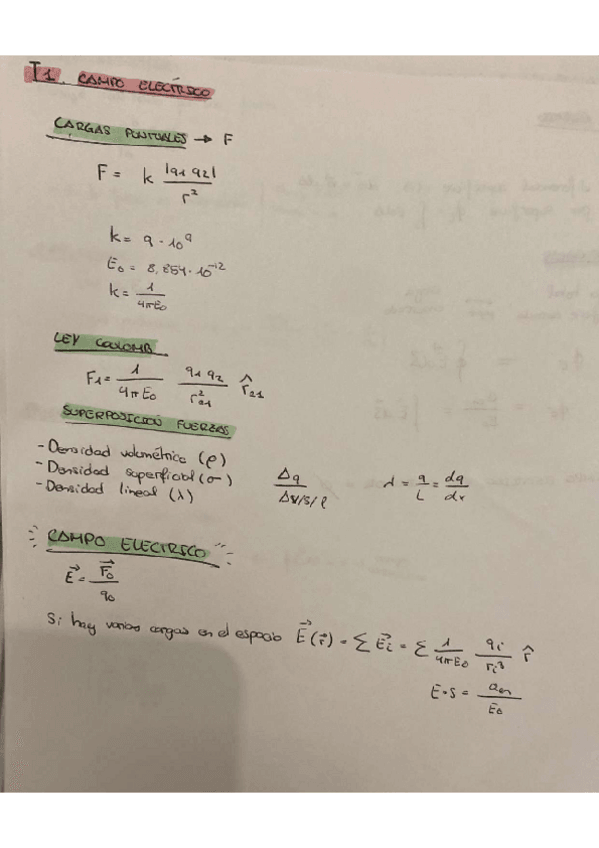 T1. CAMPO ELECTRICO
CARGAS PUNTUALES → F
F = k |q1 q2| / r²
k = 9 · 10⁹
E0 = 8,854 · 10⁻¹²
k = 1 / 4πE0
LEY COULOMB
F1 = 1 / 4πE0 q1 q2 / r²21 r̂21
SUPERPOSICIÓN FUERZAS
- Densidad volumétrica (ρ)
- Densidad superficial (σ) Δq / ΔV/S/l λ = q / L = dq / dx
- Densidad lineal (λ)
CAMPO ELECTRICO
E⃗ = F⃗0 / q0
Si hay varias cargas en el espacio E⃗(r⃗) = Σ E⃗i = Σ 1 / 4πE0 qi / ri³ r̂
E · S = / E0